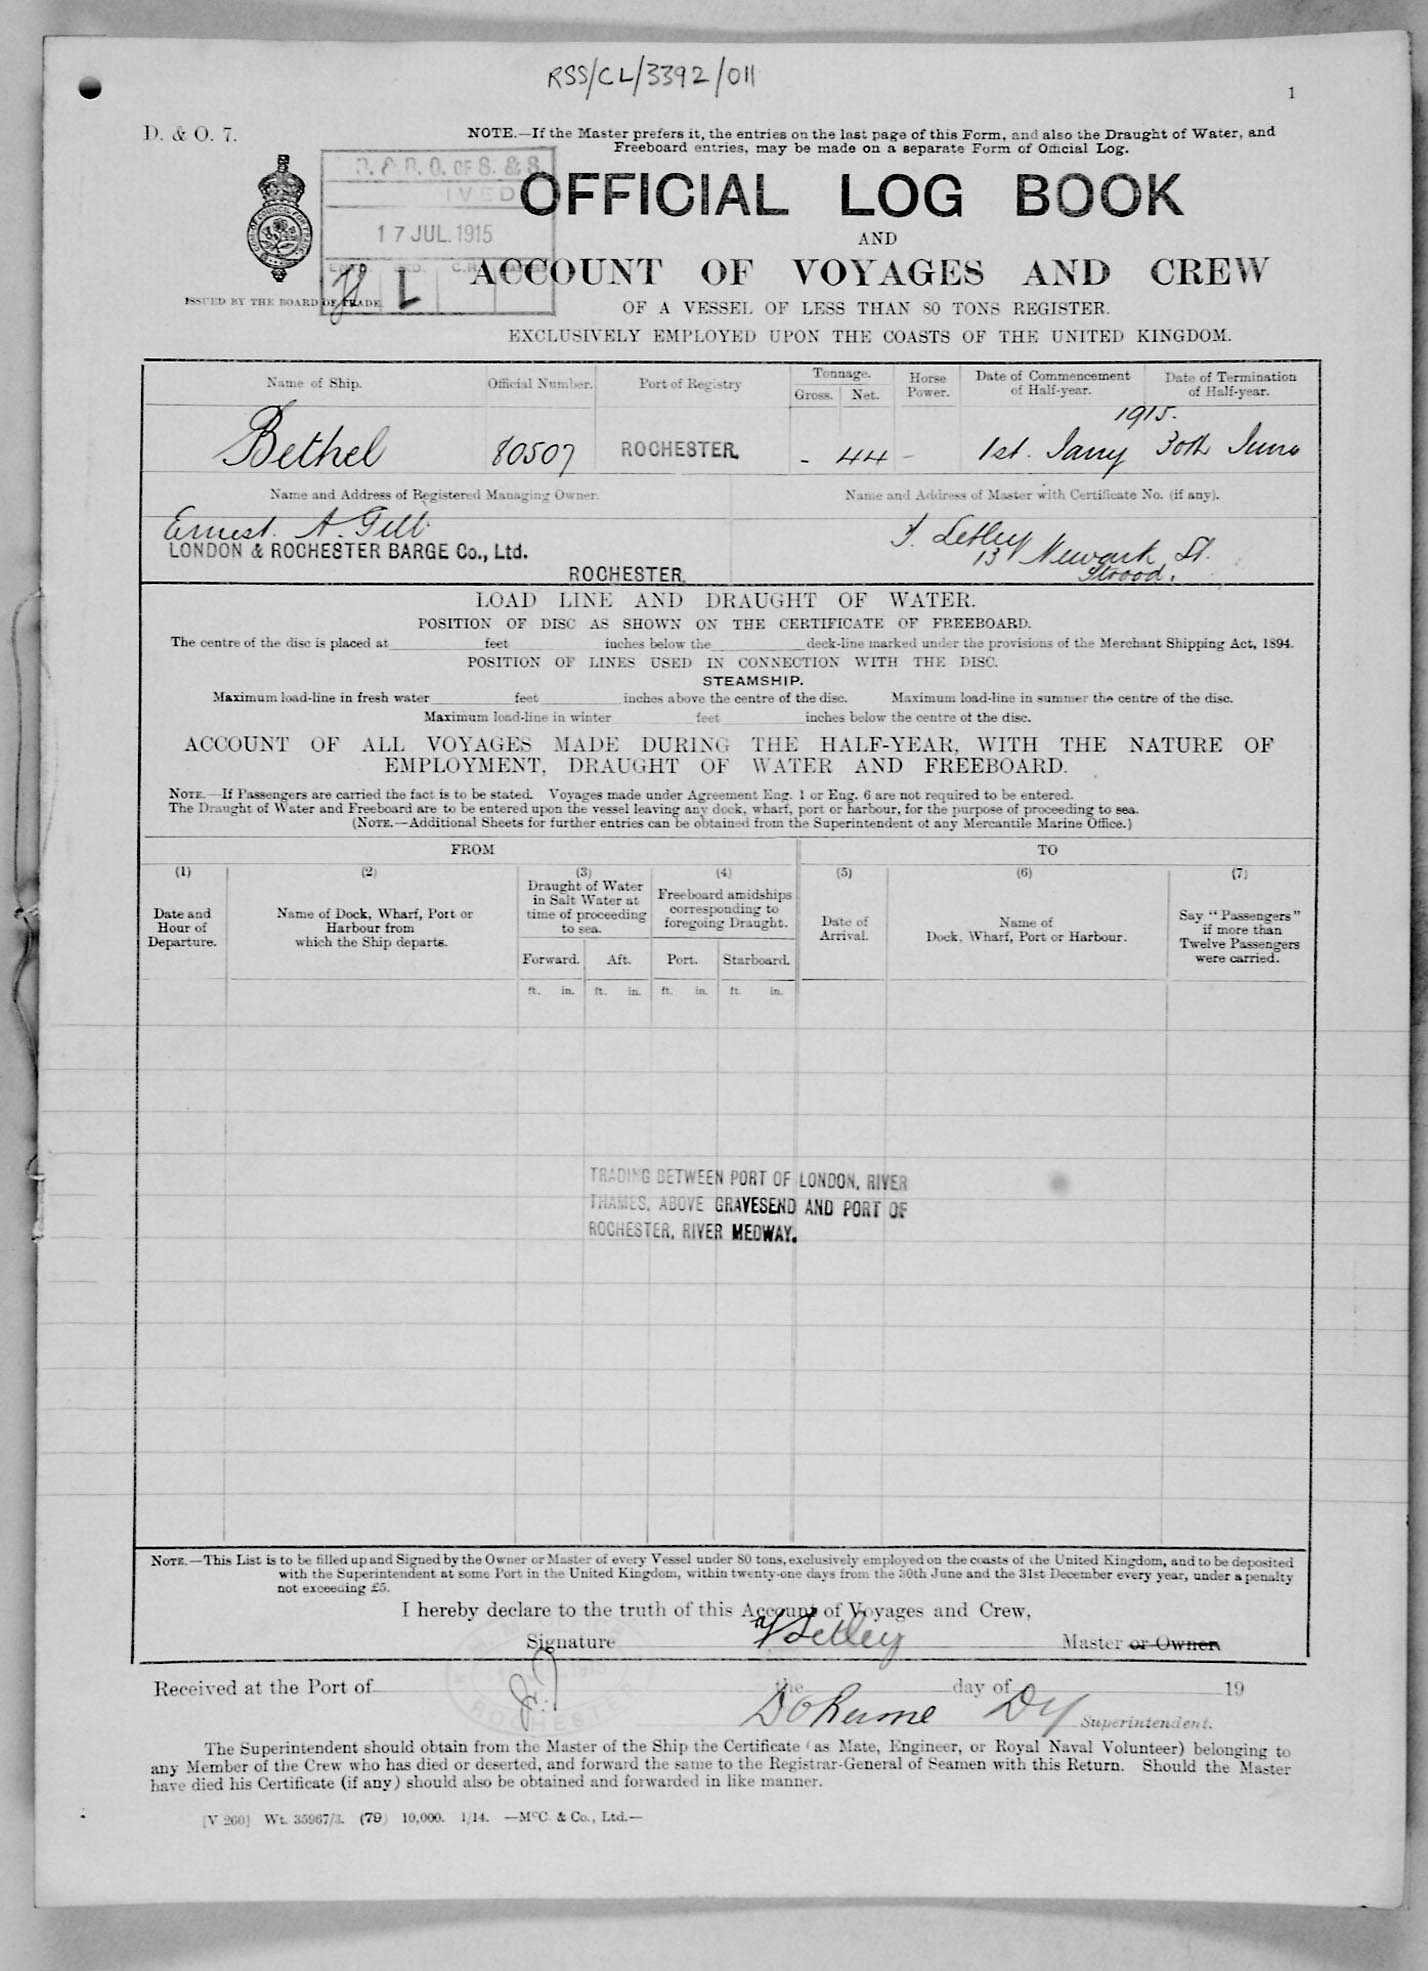 RSS/CL/3392/011
1
D. & O. 7.
NOTE.—If the Master prefers it, the entries on the last page of this Form, and also the Draught of Water, and
Freeboard entries, may be made on a separate Form of Official Log.
OF S. & S.
IVED
17 JUL. 1915
L
OFFICIAL LOG BOOK
AND
ACCOUNT OF VOYAGES AND CREW
ISSUED BY THE BOARD OF TRADE
OF A VESSEL OF LESS THAN 80 TONS REGISTER.
EXCLUSIVELY EMPLOYED UPON THE COASTS OF THE UNITED KINGDOM.
Name of Ship. Official Number. Port of Registry Tonnage. Horse Power. Date of Commencement of Half-year. Date of Termination of Half-year.
Gross. Net.
1915.
Bethel 80507 ROCHESTER. - 44 - 1st. Jany 30th June
Name and Address of Registered Managing Owner. Name and Address of Master with Certificate No. (if any).
Ernest. A. Gill
LONDON & ROCHESTER BARGE Co., Ltd.
ROCHESTER.
Letley
13 Newark St.
Strood.
LOAD LINE AND DRAUGHT OF WATER.
POSITION OF DISC AS SHOWN ON THE CERTIFICATE OF FREEBOARD.
The centre of the disc is placed at feet inches below the deck-line marked under the provisions of the Merchant Shipping Act, 1894.
POSITION OF LINES USED IN CONNECTION WITH THE DISC.
STEAMSHIP.
Maximum load-line in fresh water feet inches above the centre of the disc. Maximum load-line in summer the centre of the disc.
Maximum load-line in winter feet inches below the centre of the disc.
ACCOUNT OF ALL VOYAGES MADE DURING THE HALF-YEAR, WITH THE NATURE OF
EMPLOYMENT, DRAUGHT OF WATER AND FREEBOARD.
NOTE.—If Passengers are carried the fact is to be stated. Voyages made under Agreement Eng. 1 or Eng. 6 are not required to be entered.
The Draught of Water and Freeboard are to be entered upon the vessel leaving any dock, wharf, port or harbour, for the purpose of proceeding to sea.
(NOTE.—Additional Sheets for further entries can be obtained from the Superintendent of any Mercantile Marine Office.)
FROM TO
(1) (2) (3) (4) (5) (6) (7)
Date and
Hour of
Departure.
Name of Dock, Wharf, Port or
Harbour from
which the Ship departs.
Draught of Water
in Salt Water at
time of proceeding
to sea.
Freeboard amidships
corresponding to
foregoing Draught.
Date of
Arrival.
Name of
Dock, Wharf, Port or Harbour.
Say "Passengers"
if more than
Twelve Passengers
were carried.
Forward. Aft. Port. Starboard.
ft. in. ft. in. ft. in. ft. in.
TRADING BETWEEN PORT OF LONDON, RIVER
THAMES, ABOVE GRAVESEND AND PORT OF
ROCHESTER, RIVER MEDWAY.
NOTE.—This List is to be filled up and Signed by the Owner or Master of every Vessel under 80 tons, exclusively employed on the coasts of the United Kingdom, and to be deposited
with the Superintendent at some Port in the United Kingdom, within twenty-one days from the 30th June and the 31st December every year, under a penalty
not exceeding £5.
I hereby declare to the truth of this Account of Voyages and Crew,
Signature Letley Master or Owner.
Received at the Port of the day of 19
ROCHESTER
Dy Superintendent.
The Superintendent should obtain from the Master of the Ship the Certificate (as Mate, Engineer, or Royal Naval Volunteer) belonging to
any Member of the Crew who has died or deserted, and forward the same to the Registrar-General of Seamen with this Return. Should the Master
have died his Certificate (if any) should also be obtained and forwarded in like manner.
[V 260] Wt. 35967/3. (79) 10,000. 1/14. —McC. & Co., Ltd.—